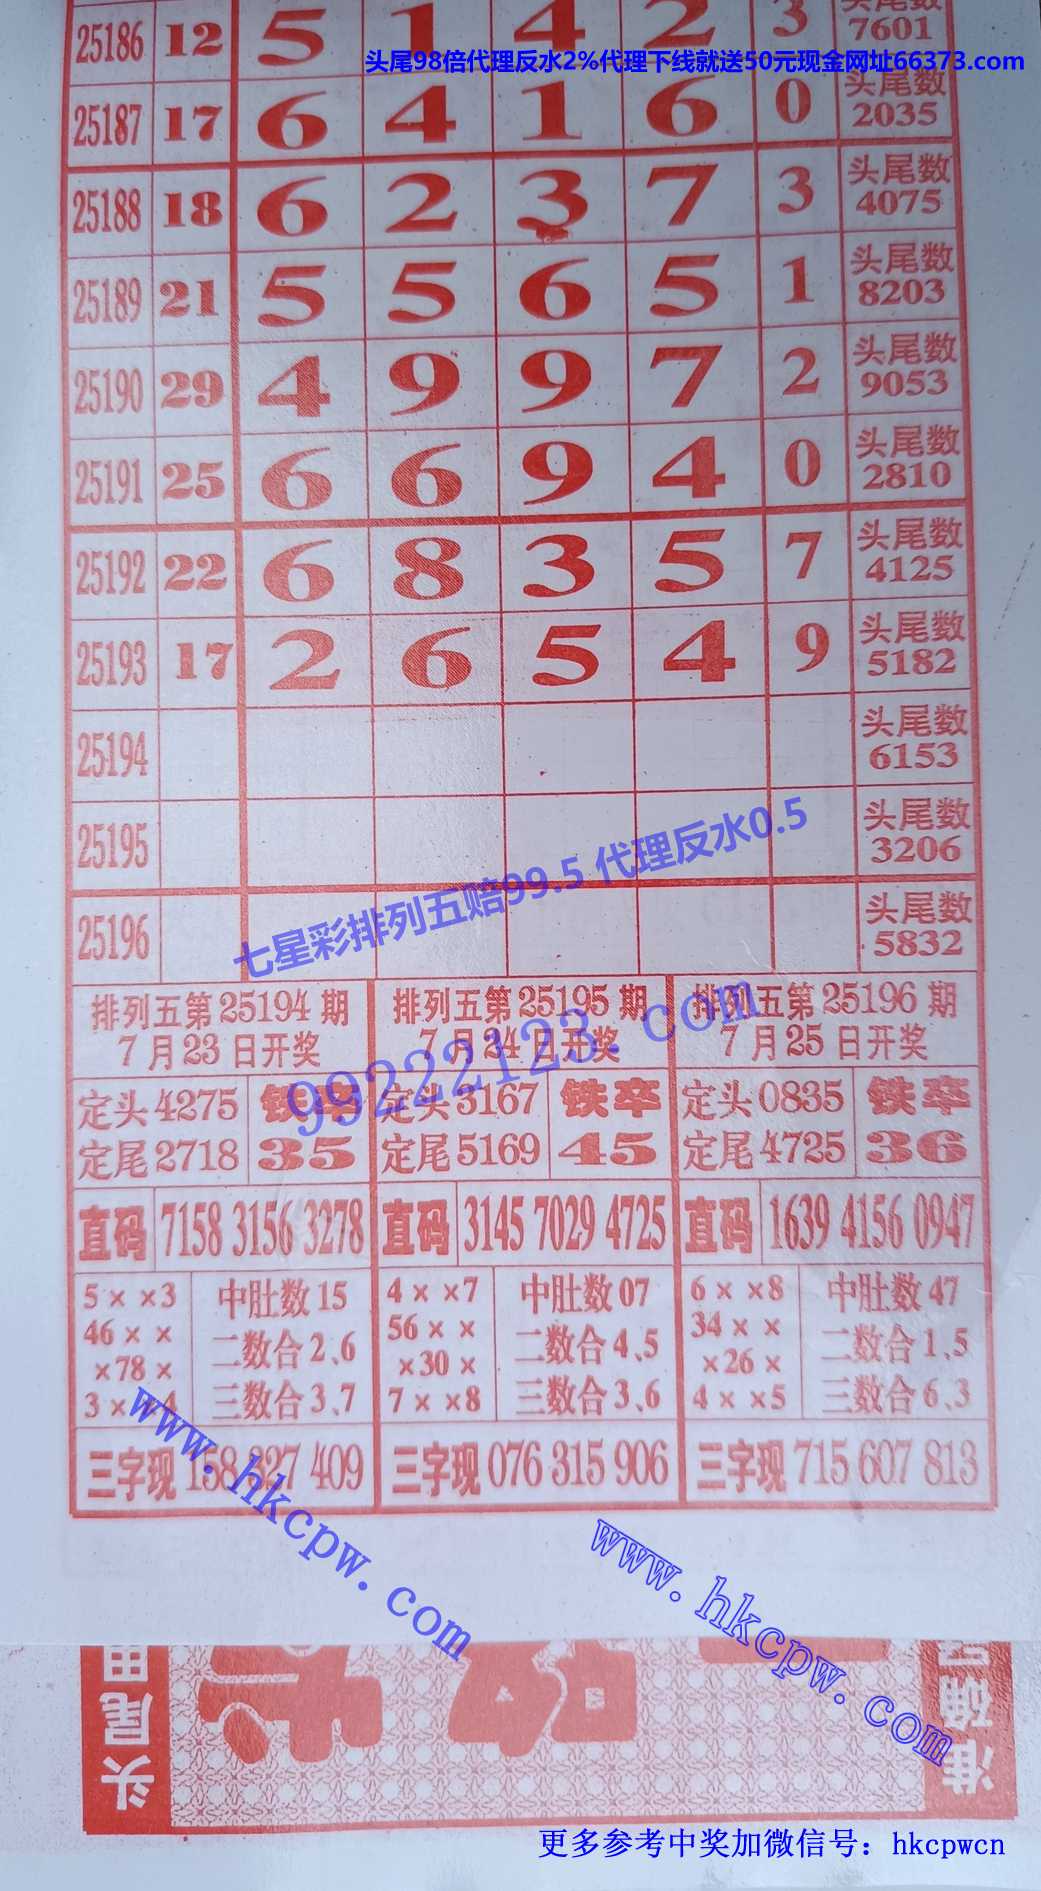 25186 12 5 1 4 2 3 头尾数
7601
头尾98倍代理反水2%代理下线就送50元现金网址66373.com
25187 17 6 4 1 6 0 头尾数
2035
25188 18 6 2 3 7 3 头尾数
4075
25189 21 5 5 6 5 1 头尾数
8203
25190 29 4 9 9 7 2 头尾数
9053
25191 25 6 6 9 4 0 头尾数
2810
25192 22 6 8 3 5 7 头尾数
4125
25193 17 2 6 5 4 9 头尾数
5182
25194 头尾数
6153
25195 头尾数
3206
七星彩排列五赔99.5 代理反水0.5
25196 头尾数
5832
99222123.com
排列五第25194期
7月23日开奖
定头4275
定尾2718
铁卒
35
直码 7158 3156 3278
5××3
46××
×78×
3××4
中肚数15
二数合2、6
三数合3、7
三字现 158 327 409
排列五第25195期
7月24日开奖
定头3167
定尾5169
铁卒
45
直码 3145 7029 4725
4××7
56××
×30×
7××8
中肚数07
二数合4、5
三数合3、6
三字现 076 315 906
排列五第25196期
7月25日开奖
定头0835
定尾4725
铁卒
36
直码 1639 4156 0947
6××8
34××
×26×
4××5
中肚数47
二数合1、5
三数合6、3
三字现 715 607 813
www.hkcpw.com
www.hkcpw.com
头尾
准确
更多参考中奖加微信号：hkcpwcn